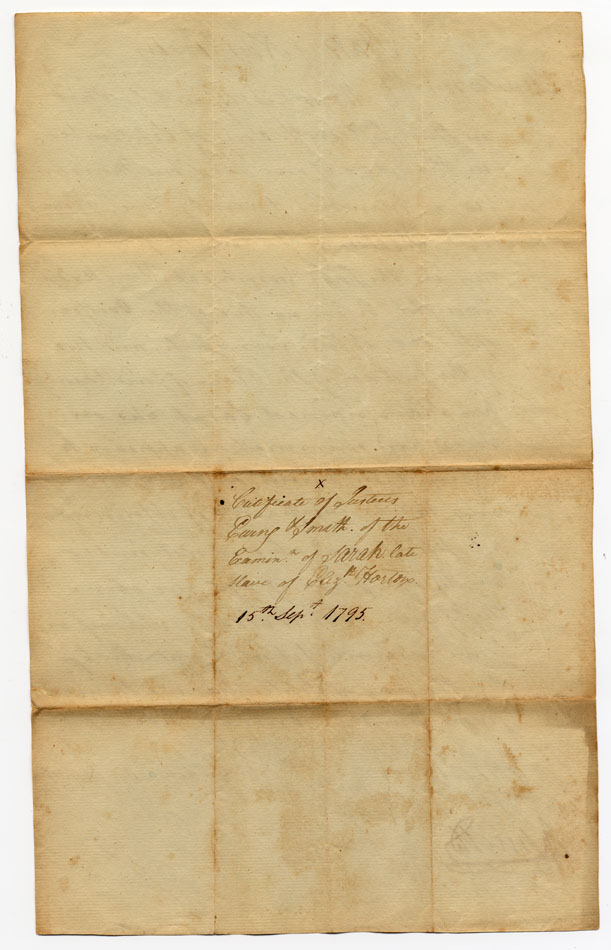 x
Certificate of Justices
Ewing & Smith. of the
Examin.n of Sarah late
Slave of Eliz.th Horton.
15.th Sep.t 1795.